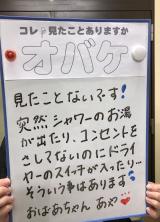 コレ見たことありますか
オバケ
見たことないです!
突然シャワーのお湯
が出たり、コンセントを
さしてないのにドライ
ヤーのスイッチが入ったり…
そういう事はあります
おばあちゃん あや…❤